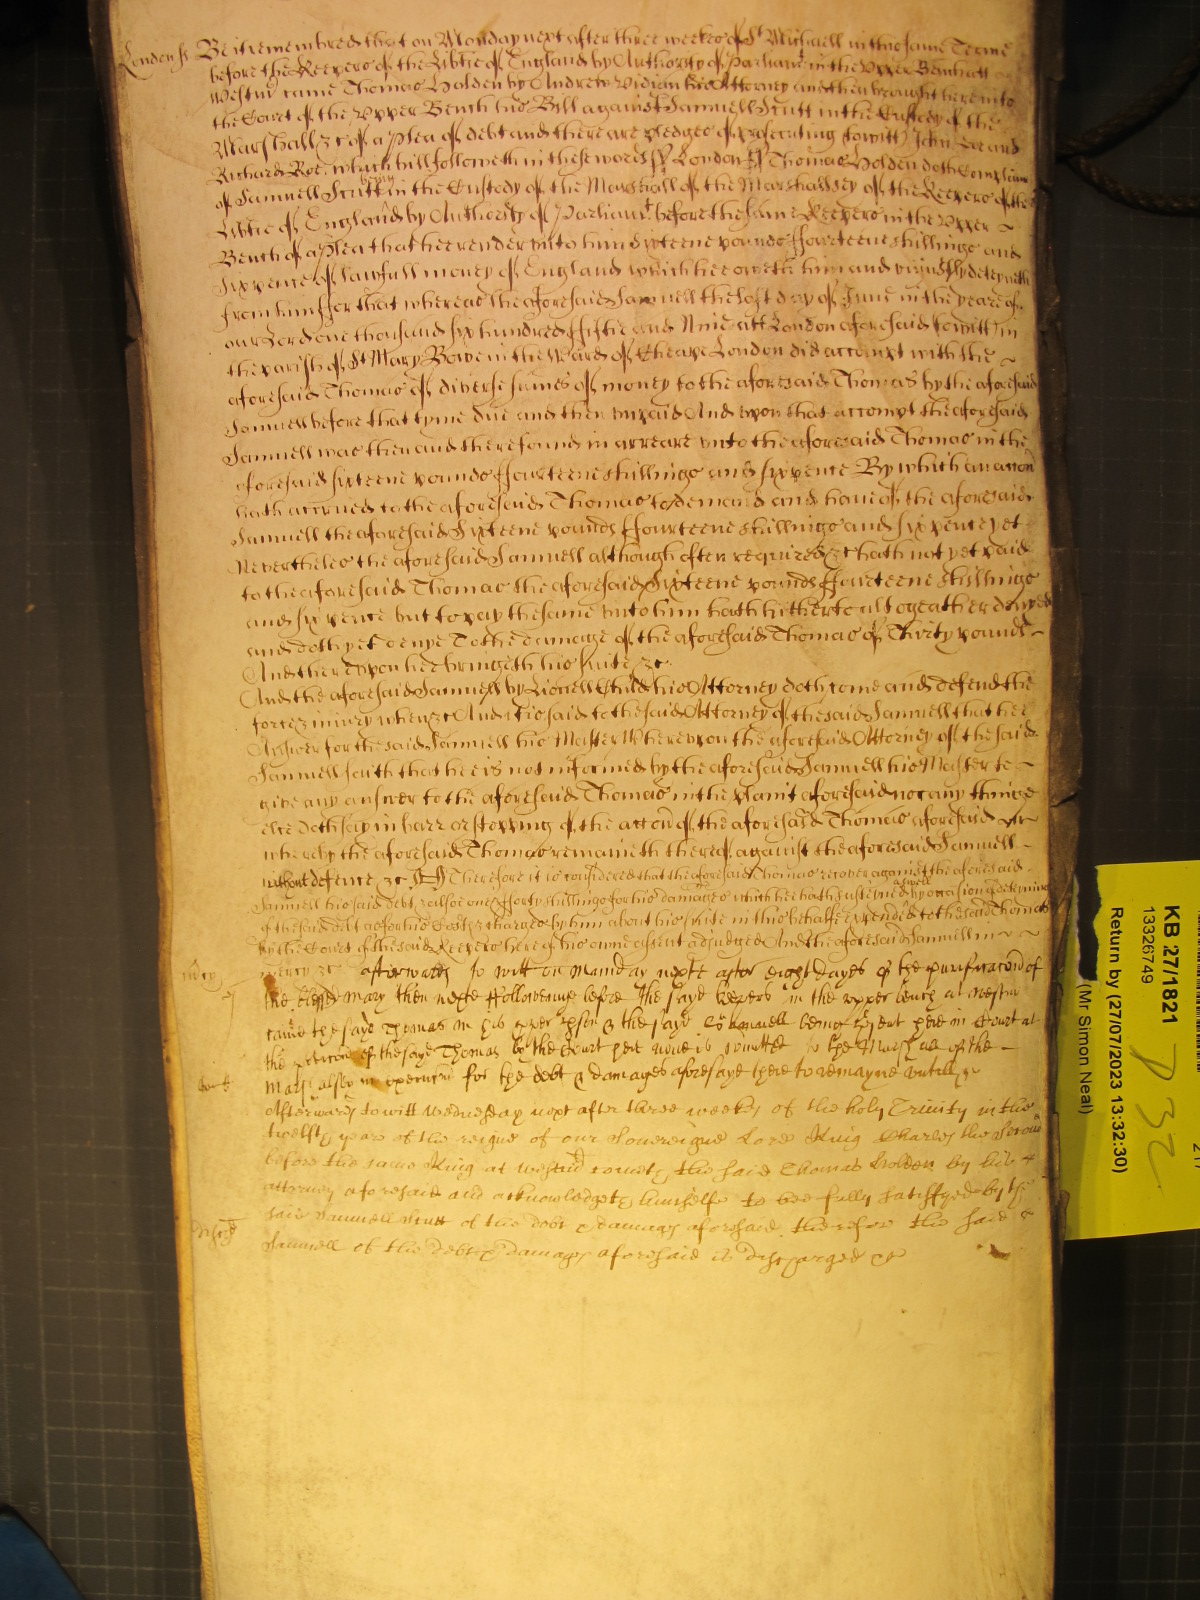 London ss Be it remembred that on Monday next after three weekes of St Michaell in the same Terme
before the Keepers of the Libtie of England by Authority of Parliamt in the Upper Bench att
Westmr came Thomas Holden by Andrew Vidian his Attorney and then brought here into
the Court of the Upper Bench his Bill against Samuell Scutt in the Custody of the
Marshall &c of a Plea of debt and there are pledges of prosecuting (towitt) John Doe and
Richard Roe. which bill followeth in these words ss London ss Thomas Holden doth Complaine
of Samuell Scutt being in the Custody of the Marshall of the Marshallsey of the Keepers of the
Libtie of England by Authority of Parliamt before the same Keepers in the Upper
Bench of a Plea that hee render unto him Sixteene pounds ffowerteene shillings and
Sixpence of lawfull money of England which hee oweth him and uniustly deteyneth
from him ffor that whereas the aforesaid Samuell the last day of June in the yeare of
our Lord one thousand six hundred ffiftie and Nine att London aforesaid (towitt) in
the parish of St Mary Bowe in the Ward of Cheape London did accompt with the
aforesaid Thomas of diverse sumes of money to the aforesaid Thomas by the aforesaid
Samuell before that tyme due and then unpaid And upon that accompt the aforesaid
Samuell was then and there found in arreare unto the aforesaid Thomas in the
aforesaid sixteene pounds ffowerteene shillings and sixpence By which an accon
hath accrued to the aforesaid Thomas to demand and have of the aforesaid
Samuell the aforesaid Sixteene pounds ffourteene shillings and sixpence yet
Neverthelės the aforesaid Samuell although often required &c hath not yet paid
to the aforesaid Thomas the aforesaid Sixteene pounds ffowerteene shillings
and sixpence but to pay the same unto him hath hitherto altogeather denyed
and doth yet denye To the damage of the aforesaid Thomas of Thirty pounds
And thereupon hee bringeth his suite &c
And the aforesaid Samuell by Lionell Child his Attorney doth come and defend the
force & iniury when &c And it is said to the said Attorney of the said Samuell that hee
Answer for the said Samuell his Master Whereupon the aforesaid Attorney of the said
Samuell saith that hee is not informed by the aforesaid Samuell his Master to
give any answer to the aforesaid Thomas in the plaint aforesaid nor any thinge
else doth say in barr or stopping of the accon of the aforesaid Thomas aforesaid
whereby the aforesaid Thomas remaineth thereof against the aforesaid Samuell
without defence &c Therefore it is considered that the aforesaid Thomas recover against the aforesaid
Samuell his said debt, and alsoe fforty shillings for his damages which hee hath susteyned aswell by occasion of deteyning
of the said debt as for his Costs & charges by him about his suite in this behalfe expended to the said Thomas
by the Court of the said Keepers here of his owne assent adjudged And the aforesaid Samuell in
mercy
mercy &c afterwards to witt on Munday next after eight dayes of the purificacon of
the blessed Mary then next ffollowinge before the sayd keepers in the upper bench at Westmr
came the sayd Thomas in his pper pson & the sayd Samuell being psent here in Court at
the peticon of the sayd Thomas by the Court here nowe is comitted to the Marshall of the
Marshalsey in execucon for the debt & damages aforesayd there to remayne untill &c
Afterwards to witt Wednesday next after three weekes of the holy Trinity in the
twelfth yeare of the reigne of our Sovereigne Lord King Charles the Second
before the same King at Westmr cometh the said Thomas Holden by his
attorney aforesaid and acknowledgeth himselfe to bee fully satisfyed by the
said Samuell Scutt of the debt & damages aforesaid. therefore the said
Samuell of the debt & damages aforesaid is discharged &c
KB 27/1821
13326749
Return by (27/07/2023 13:32:30)
(Mr Simon Neal)